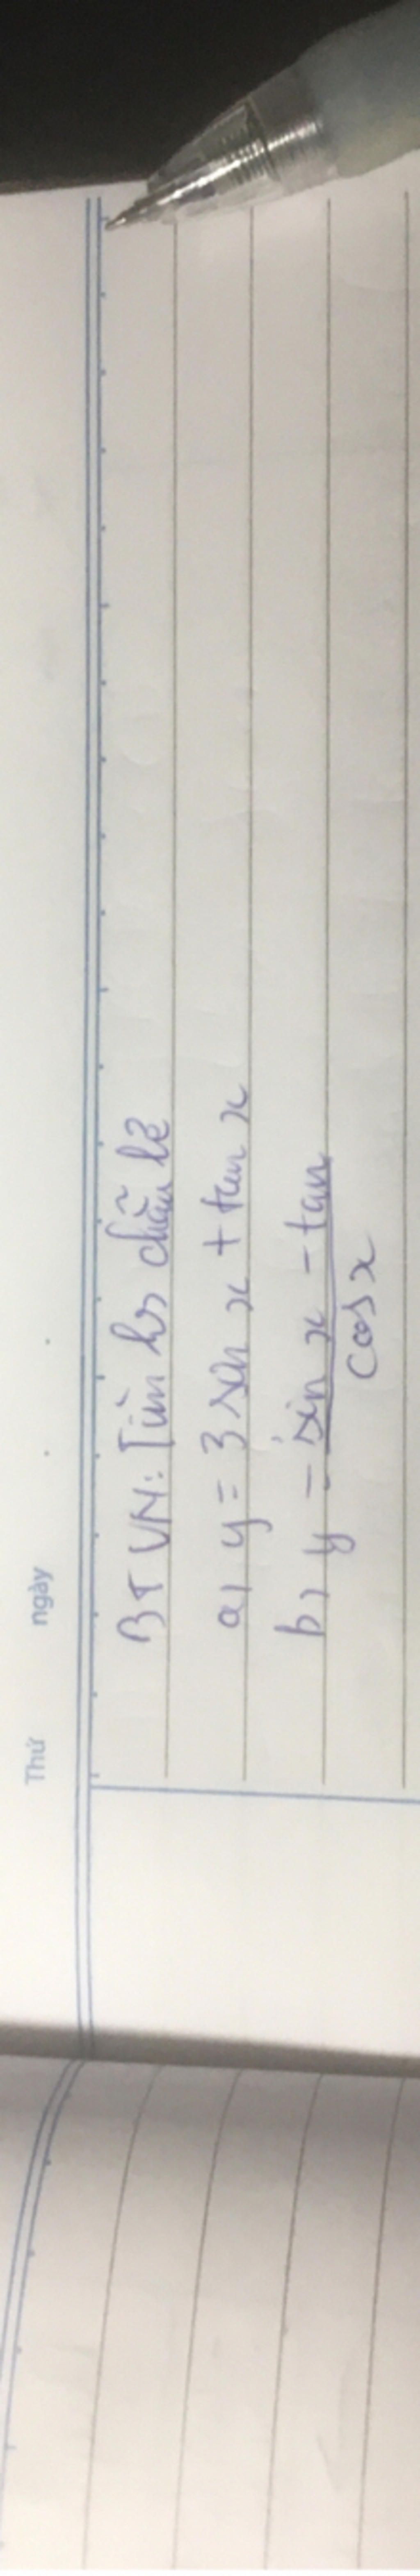 Thứ ngày
BTVN: Tìm hs chẵn lẻ
a, y = 3 sin x + tan x
b, y = sin x - tan
cos x